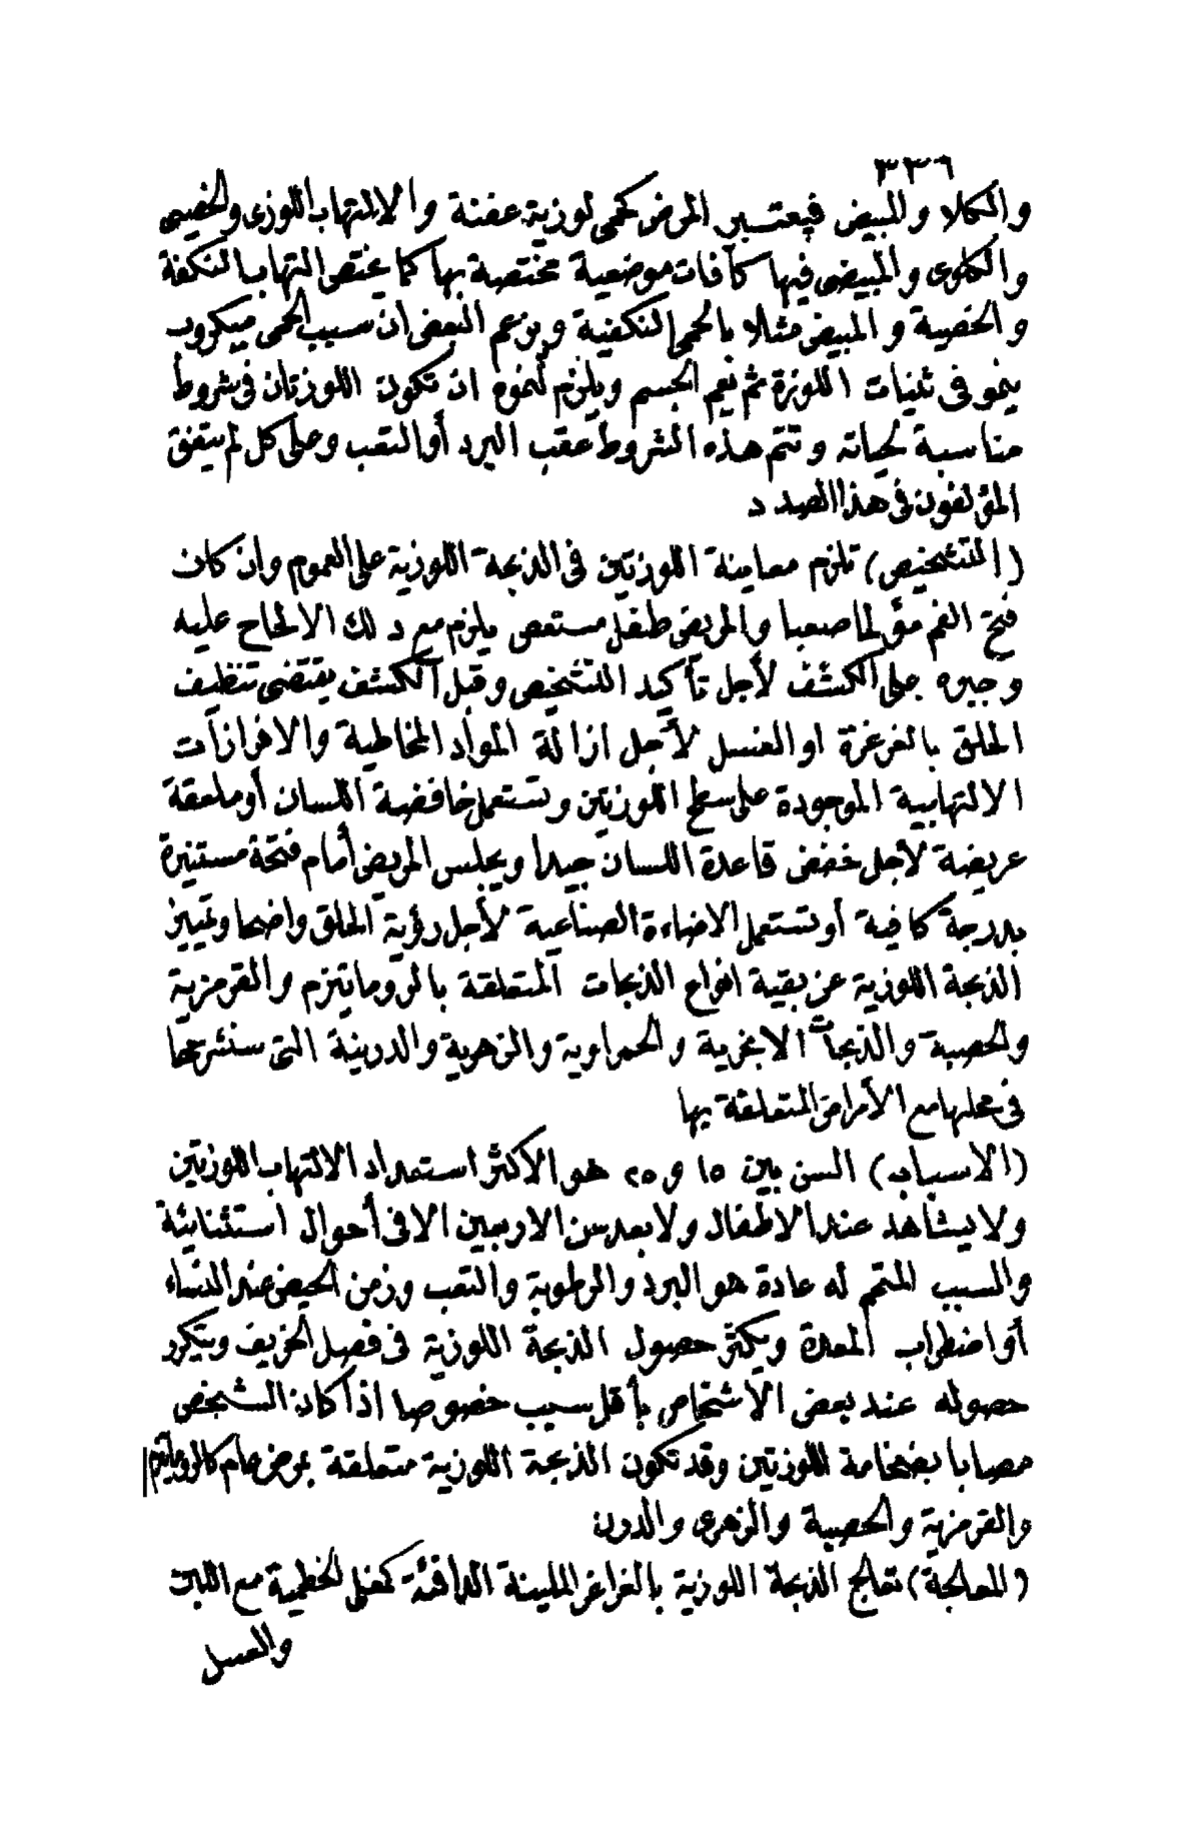 ٣٣٦
والكلا والمبيض فيعتبر المرض كحمى لوزية عفنة والالتهاب اللوزى والخصيى
والكلوى والمبيضى فيها كآفات موضعية مختصة بها كما يختص التهاب النكفة
والخصية والمبيض مثلا بالحمى النكفية ويزعم البعض ان سبب الحمى ميكروب
ينمو فى ثنيات اللوزة ثم يعم الجسم ويلزم لنموه ان تكون اللوزتان فى شروط
مناسبة لحياته وتتم هذه الشروط عقب البرد أو التعب وعلى كل لم يتفق
المؤلفون فى هذا الصدد
(التشخيص) تلزم معاينة اللوزتين فى الذبحة اللوزية على العموم وان كان
فتح الفم مؤلما صعبا والمريض طفل مستعص يلزم مع ذلك الالحاح عليه
وجبره على الكشف لأجل تأكيد التشخيص وقبل الكشف يقتضى تنظيف
الحلق بالغرغرة او الغسل لأجل ازالة المواد المخاطية والافرازات
الالتهابية الموجودة على سطح اللوزتين وتستعمل خافضة اللسان أو ملعقة
عريضة لأجل خفض قاعدة اللسان جيدا ويجلس المريض أمام فتحة مستنيرة
بدرجة كافية أو تستعمل الاضاءة الصناعية لأجل رؤية الحلق واضحا وتمييز
الذبحة اللوزية عن بقية انواع الذبحات المتعلقة بالروماتيزم والقرمزية
والحصبة والذبحات الانجرية والحمراوية والزهرية والدرنية التى سنشرحها
فى محلها مع الأمراض المتعلقة بها
(الاسباب) السن بين ١٥ و ٢٥ هو الأكثر استعداد الالتهاب اللوزتين
ولا يشاهد عند الاطفال ولا بعد سن الاربعين الا فى أحوال استثنائية
والسبب المتمم له عادة هو البرد والرطوبة والتعب وزمن الحيض عند النساء
أو اضطراب المعدة ويكثر حصول الذبحة اللوزية فى فصل الخريف ويتكرر
حصوله عند بعض الأشخاص بأقل سبب خصوصا اذا كان الشخص
مصابا بضخامة اللوزتين وقد تكون الذبحة اللوزية متعلقة بمرض عام كالروماتيزم
والقرمزية والحصبة والزهرى والدرن
(المعالجة) تعالج الذبحة اللوزية بالغراغر الملينة الدافئة كمغلى الخطمية مع اللبن
والعسل